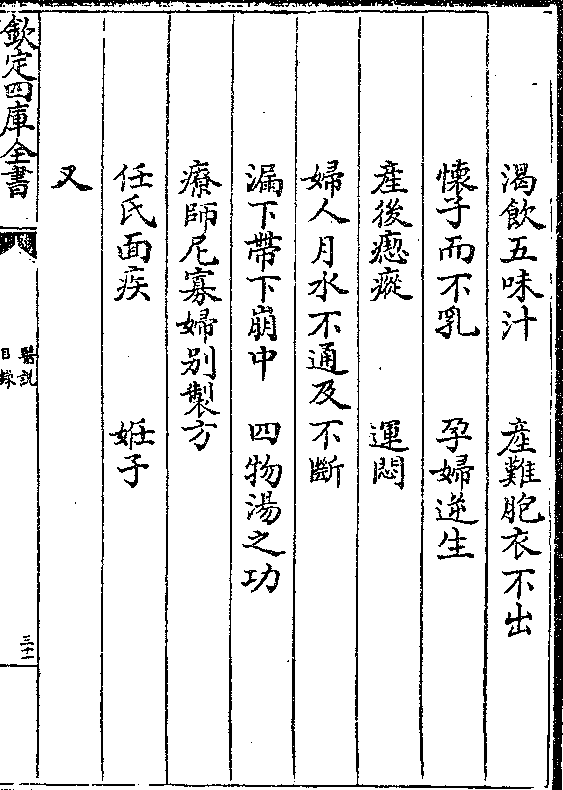 渴飲五味汁　產難胞衣不出
懐子而不乳　孕婦逆生
產後瘛瘲　運悶
婦人月水不通及不斷
漏下帶下崩中　四物湯之功
療師尼寡婦别製方
任氏面疾　姙子
又
欽定四庫全書
醫說
目錄
三十一